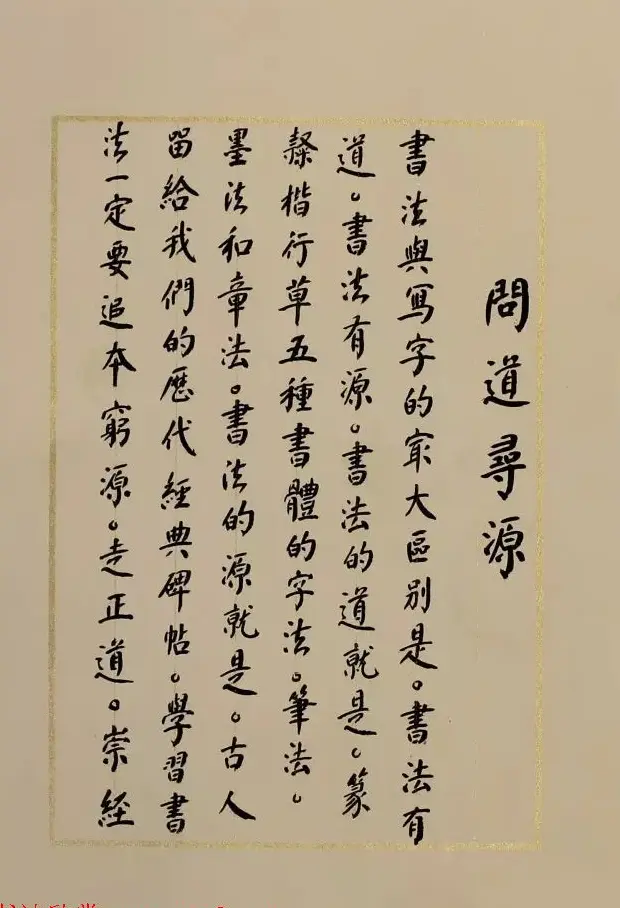 問道尋源
書法與寫字的冣大區別是。書法有
道。書法有源。書法的道就是。篆
隸楷行草五種書體的字法。筆法。
墨法和章法。書法的源就是。古人
留給我們的歷代經典碑帖。學習書
法一定要追本窮源。走正道。崇經